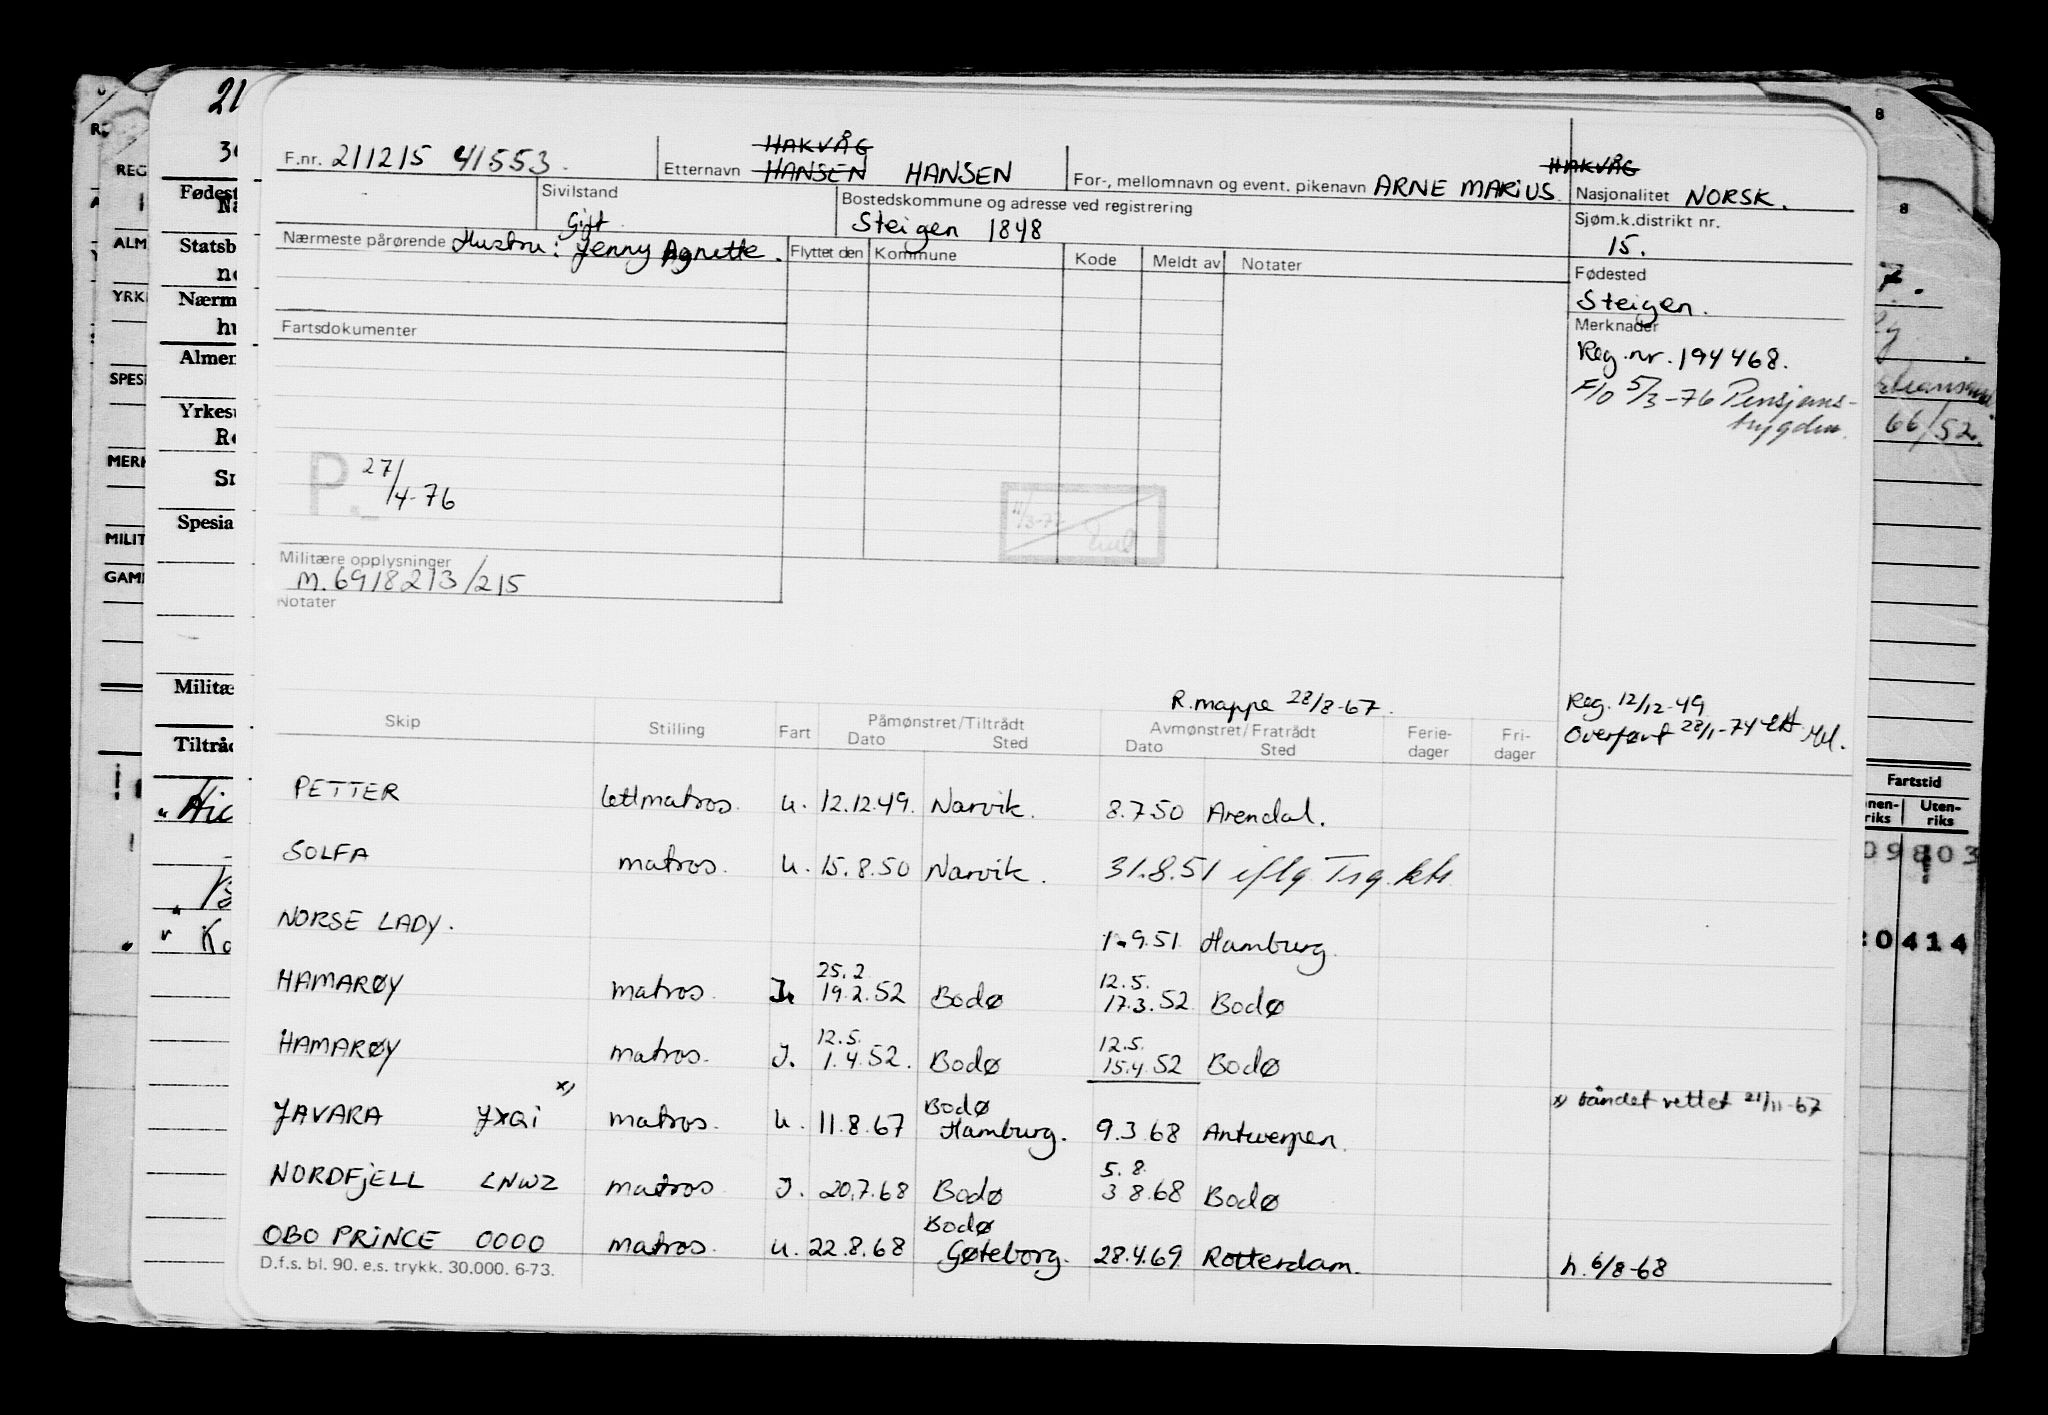 HAKVÅG
F.nr. 211215 41553. Etternavn HANSEN HANSEN For-, mellomnavn og event. pikenavn ARNE MARIUS HAKVÅG Nasjonalitet NORSK.
Sivilstand Gift Bostedskommune og adresse ved registrering Steigen 1848 Sjøm.k.distrikt nr. 15.
Nærmeste pårørende Hustru: Jenny Agnette. Flyttet den Kommune Kode Meldt av Notater
Fødested
Steigen.
Fartsdokumenter
Merknader
Reg.nr. 194468.
F/O 5/3-76 Pensjons-
trygden.
P. 27/4-76
Militære opplysninger
M.6918213/215
Notater
R.mappe 28/8-67. Reg. 12/12-49
Overført 28/1-74
Skip Stilling Fart Påmønstret/Tiltrådt Avmønstret/Fratrådt Ferie- Fri-
Dato Sted Dato Sted dager dager
PETTER lettmatros. u. 12.12.49. Narvik. 8.7.50 Arendal.
SOLFA matros. u. 15.8.50 Narvik. 31.8.51 iflg Trg.
NORSE LADY. 1.9.51. Hamburg.
25.2 12.5.
HAMARØY matros. 19.2.52 Bodø 17.3.52 Bodø
12.5. 12.5.
HAMARØY matros. J. 1.4.52. Bodø 15.4.52 Bodø
x) Bodø x) båndet rettet 21/11-67
JAVARA JXQI matros. u. 11.8.67 Hamburg. 9.3.68 Antwerpen.
5.8.
NORDFJELL LNWZ matros J. 20.7.68 Bodø 3.8.68 Bodø
Bodø
OBO PRINCE OOOO matros. u. 22.8.68 Gøteborg. 28.4.69 Rotterdam. h. 6/8-68
D.f.s. bl. 90. e.s. trykk. 30.000. 6-73.
21
Fødest
Statsb
Nærm
Almen
Yrkesu
Spesia
Militæ
Tiltråd
REG
ALM
YRK
SPESI
MERK
MILIT
GAM
66/52.
Fartstid
nnen-
riks
Uten-
riks
09803
20414